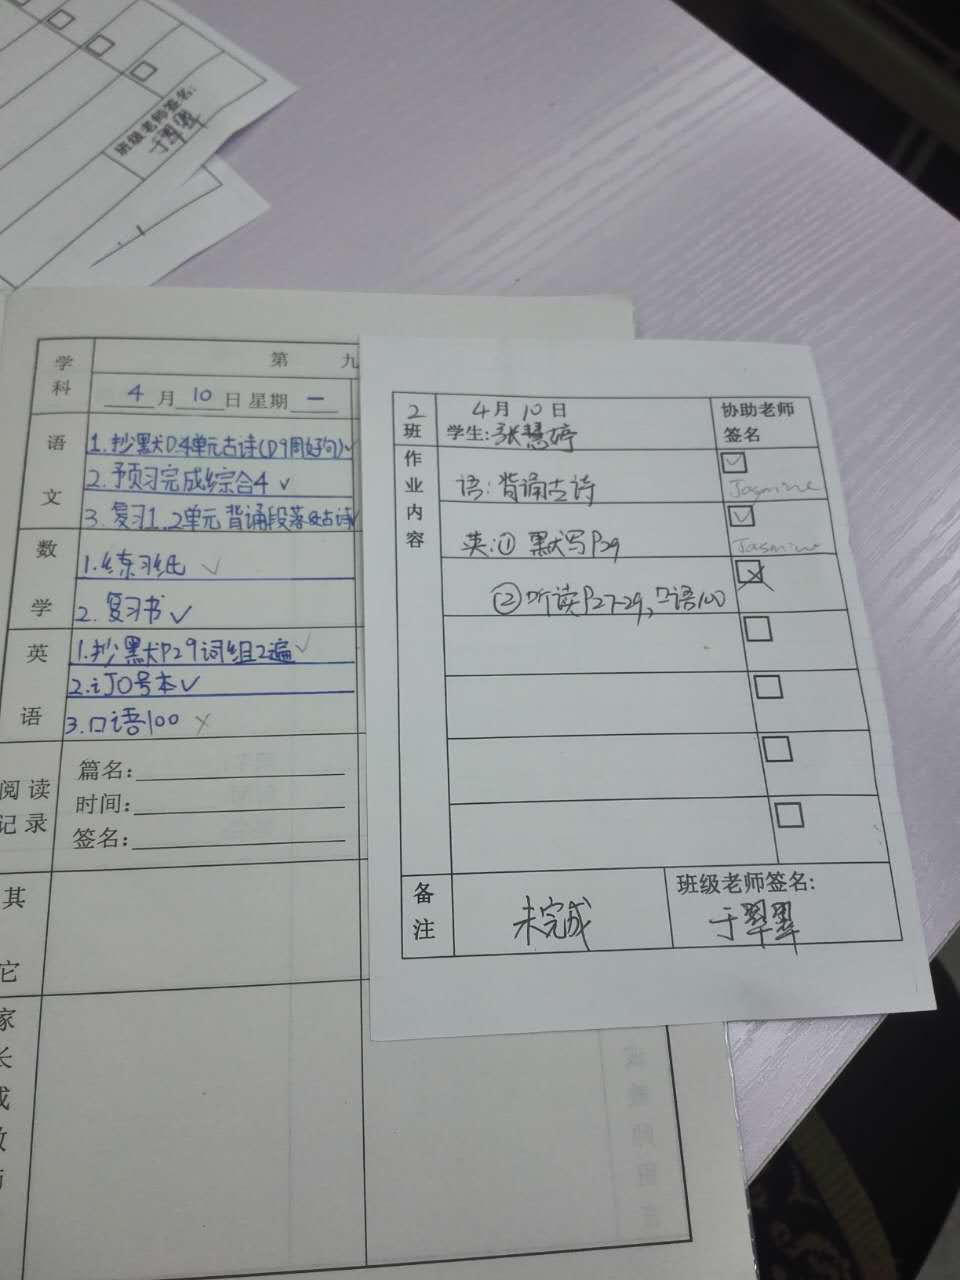 班级老师签名:
于翠翠
学科
第 九
4月10日 星期一
语文
1.抄默P.4单元古诗(P9周好句)✓
2.预习完成综合4 ✓
3.复习1.2单元 背诵段落及古诗✓
数学
1.练习纸 ✓
2.复习书 ✓
英语
1.抄默P29词组2遍 ✓
2.订0号本 ✓
3.口语100 ×
阅读记录
篇名:
时间:
签名:
其它
家长或教师
2班
4月10日
学生:张慧婷
协助老师
签名
作业内容
语:背诵古诗
Jasmine
英:① 默写P29
Jasmine
② 听读P27-29,口语100
备注
未完成
班级老师签名:
于翠翠